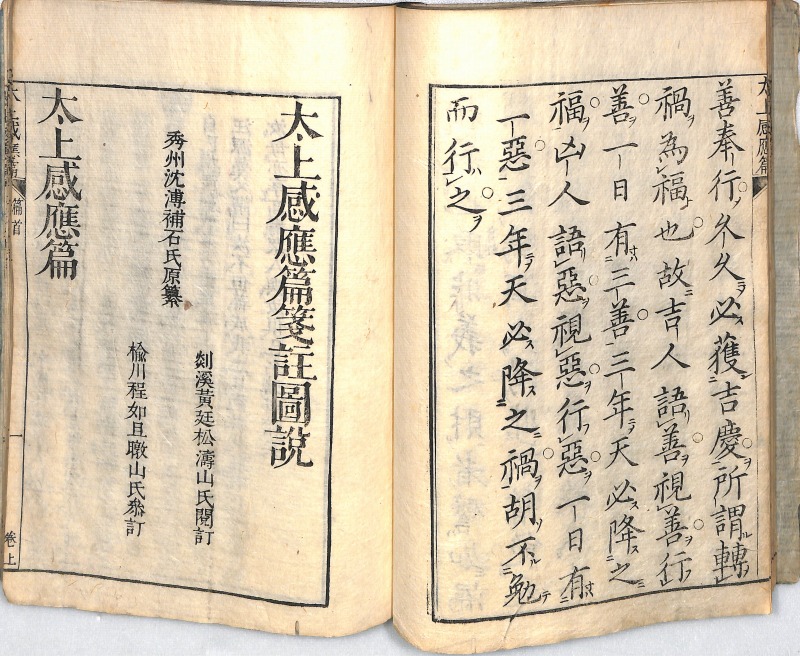 太上感應篇
善奉行久久必獲吉慶所謂轉
禍為福也故吉人語善視善行
善一日有三善三年天必降之
福凶人語惡視惡行惡一日有
一惡三年天必降之禍胡不勉
而行之
太上感應篇箋註圖說
秀州沈溥補石氏原纂
剡溪黃廷松濤山氏閱訂
楡川程如旦暾山氏叅訂
太上感應篇
太上感應篇 篇首 一 卷上